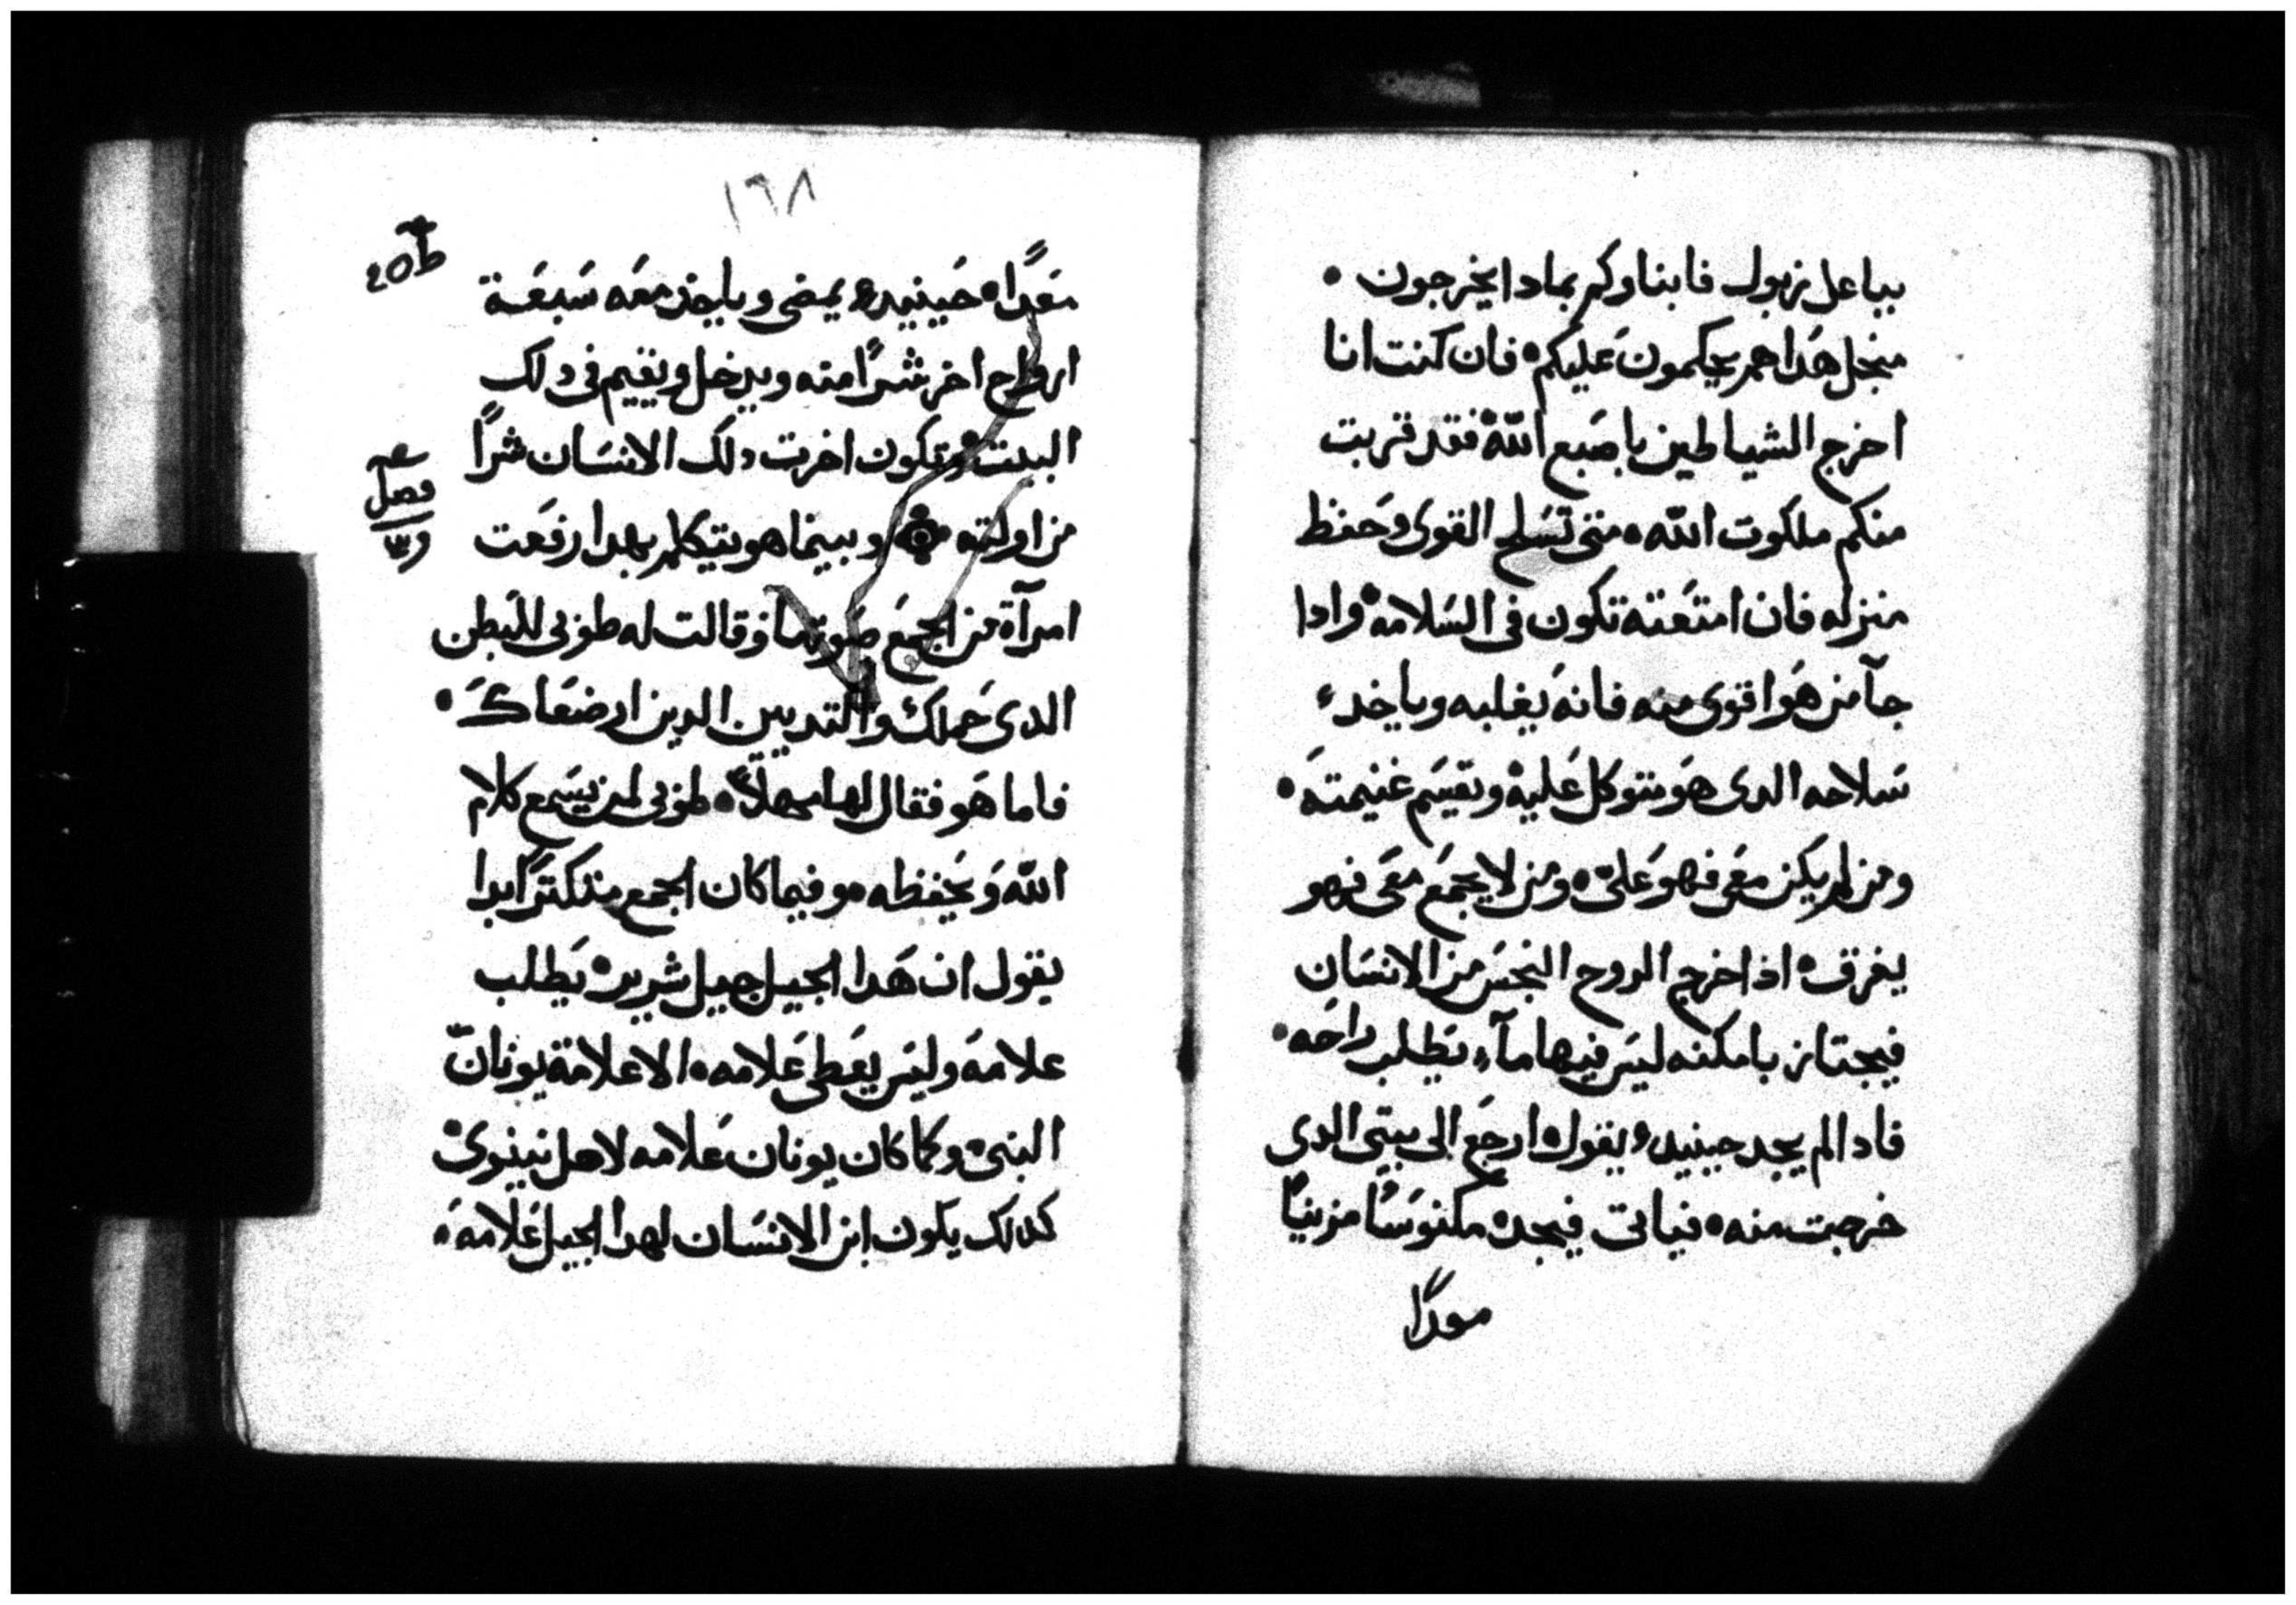 بباعل زبول فابناوكم بمادا يخرجون •
منجل هَدا هم يحكمون عَليكم • فان كنت انا
اخرج الشياطين باصَبع اللّه فقد قربت
منكم ملكوت اللّه • متي تسَلح القوى وحَفظ
منزله فان امتعَته تكون فى السَلامه • وادا
جآ من هَو اقوى منه فانه يغلبه وياخد
سَلاحه الدى هَو متوكل عَليه • وتقسَم غنيمته •
ومن لم يكن معَى فهو عَلىّ • ومن لا يجمَع معَى فهو
يفرق • اذا خرج الروح النجسَ من الانسَان
فيجتاز بامكنه ليسَ فيها مآء يَطلب راحَه •
فادا لم يجد حينيد يقول ارجَع الى بيتى الدى
خرجت منه • فياتى فيجده مكنوسًا مزينًا
معدًا
١٦٨
معَدًا • حَينيد يمضى وياخد معَه سَبعَة
ارواح اخر شرًا منه ويدخل ويقيم فى دلك
البيت • وتكون اخرت دلك الانسَان شرًا
من اولته • وبينما هو يتكلم بهدا رفعَت
فصل
امرآة من الجمَع صَوتها وقالت له طوبى للبَطن
الدى حَملك والتديين الدين ارضعَاك •
فاما هَو فقال لها مهلاً • طوبى لمن يسَمع كلام
اللّه وَيَحفظه • وفيما كان الجمع متكترًا ابدا
يقول ان هَدا الجيل جيل شرير • يَطلب
علامَه وليسَ يعَطى عَلامه • الا علامَة يونانّ
النبى • وكما كان يونان عَلامه لاهل نينوى •
كدلك يكون ابن الانسَان لهدا الجيل عَلامه •